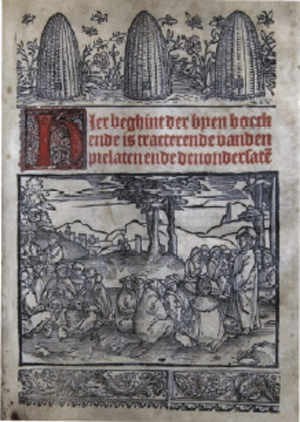 Hier beghint der byen boeck
ende is tracterende vanden
prelaten ende den ondersatē